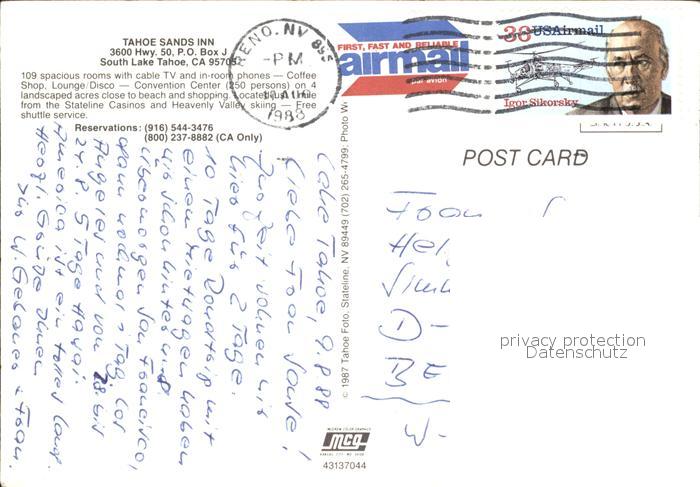 TAHOE SANDS INN
3600 Hwy. 50, P.O. Box J
South Lake Tahoe, CA 95705
109 spacious rooms with cable TV and in-room phones — Coffee
Shop, Lounge/Disco — Convention Center (250 persons) on 4
landscaped acres close to beach and shopping. Located just 1 mile
from the Stateline Casinos and Heavenly Valley skiing — Free
shuttle service.
Reservations: (916) 544-3476
(800) 237-8882 (CA Only)
RENO, NV 895
-PM-
AUG
1988
FIRST, FAST AND RELIABLE
airmail
par avion
36 USAirmail
Igor Sikorsky
POST CARD
© 1987 Tahoe Foto, Stateline, NV 89449 (702) 265-4799. Photo W
Lake Tahoe, 9.8.88
Liebe Frau
Zur Zeit wohnen wir
hier für 2 Tage.
10 Tage Rundtrip mit
einem Mietwagen haben
wir schon hinter uns.
Übermorgen San Francisco,
dann nochmal 3 Tag. Los
Angeles und von 18. bis
24.8. 5 Tage Hawai.
America ist ein tolles Land.
Herzl. Grüße Ihnen
Ihr W. + Frau.
Frau
D-
BE
W-
privacy protection
Datenschutz
MCG
43137044